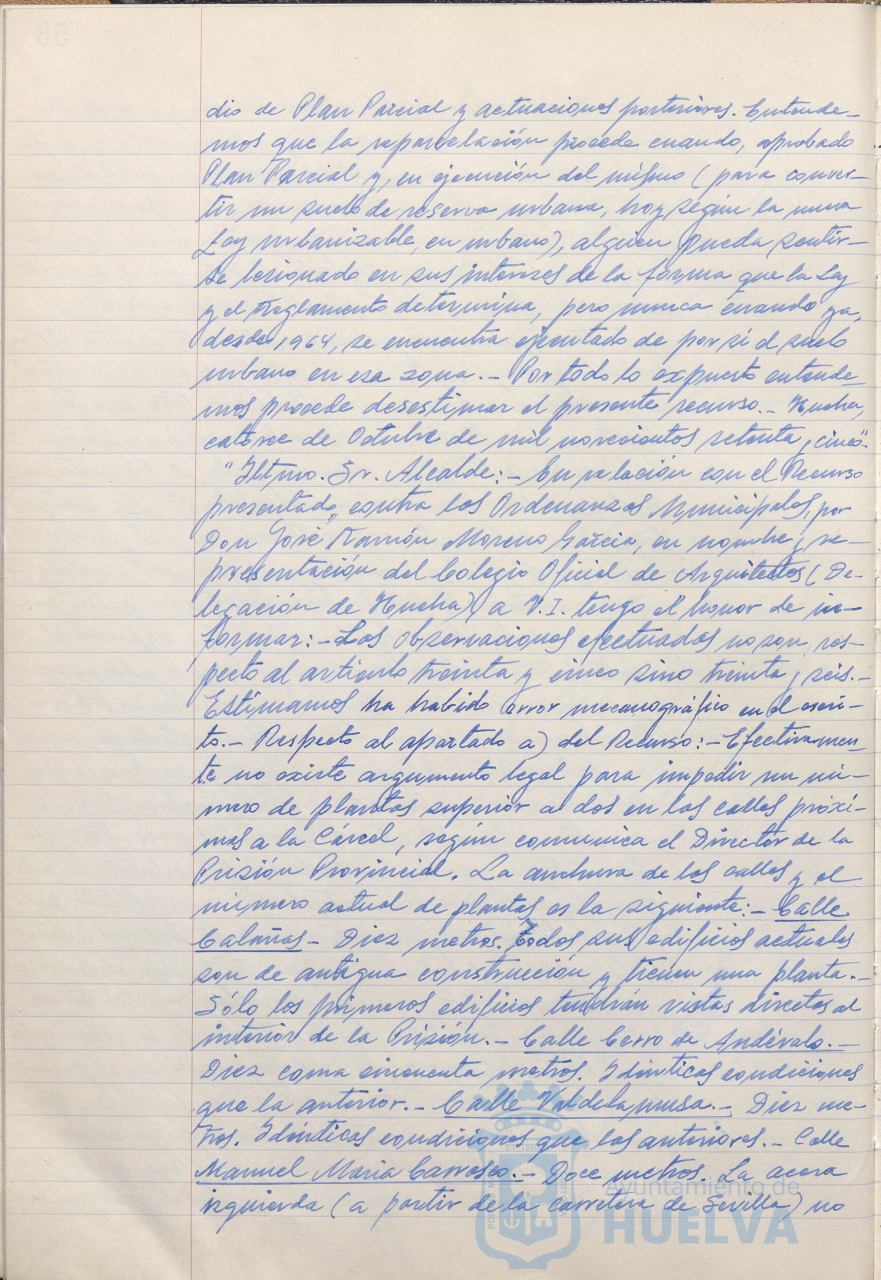 dio de Plan Parcial y actuaciones posteriores. Entende-
mos que la reparcelación procede cuando, aprobado
Plan Parcial y, en ejecución del mismo (para conver-
tir un suelo de reserva urbana, hoy según la nueva
Ley urbanizable, en urbano), alguien pueda sentir-
se lesionado en sus intereses de la forma que la Ley
y el Reglamento determina, pero nunca cuando ya,
desde 1964, se encuentra ejecutado de por sí el suelo
urbano en esa zona.- Por todo lo expuesto entende-
mos procede desestimar el presente recurso.- Huelva,
catorce de Octubre de mil novecientos setenta y cinco".-
"Iltmo. Sr. Alcalde:- En relación con el Recurso
presentado, contra las Ordenanzas Municipales, por
Don José Ramón Moreno García, en nombre y re-
presentación del Colegio Oficial de Arquitectos (De-
legación de Huelva), a V.I. tengo el honor de in-
formar:- Las observaciones efectuadas no son, res-
pecto al artículo treinta y cinco sino treinta y seis.-
Estimamos ha habido error mecanográfico en el escri-
to.- Respecto al apartado a) del Recurso:- Efectivamen-
te no existe argumento legal para impedir un nú-
mero de plantas superior a dos en las calles próxi-
mas a la Cárcel, según comunica el Director de la
Prisión Provincial. La anchura de las calles y el
número actual de plantas es la siguiente:- Calle
Calañas- Diez metros. Todos sus edificios actuales
son de antigua construcción y tienen una planta.-
Sólo los primeros edificios tendrán vistas directas al
interior de la Prisión.- Calle Cerro de Andévalo.-
Diez coma cincuenta metros. Idénticas condiciones
que la anterior.- Calle Valdelamusa.- Diez me-
tros. Idénticas condiciones que las anteriores.- Calle
Manuel María Carrasco.- Doce metros. La acera
izquierda (a partir de la carretera de Sevilla) no
Ayuntamiento de
HUELVA